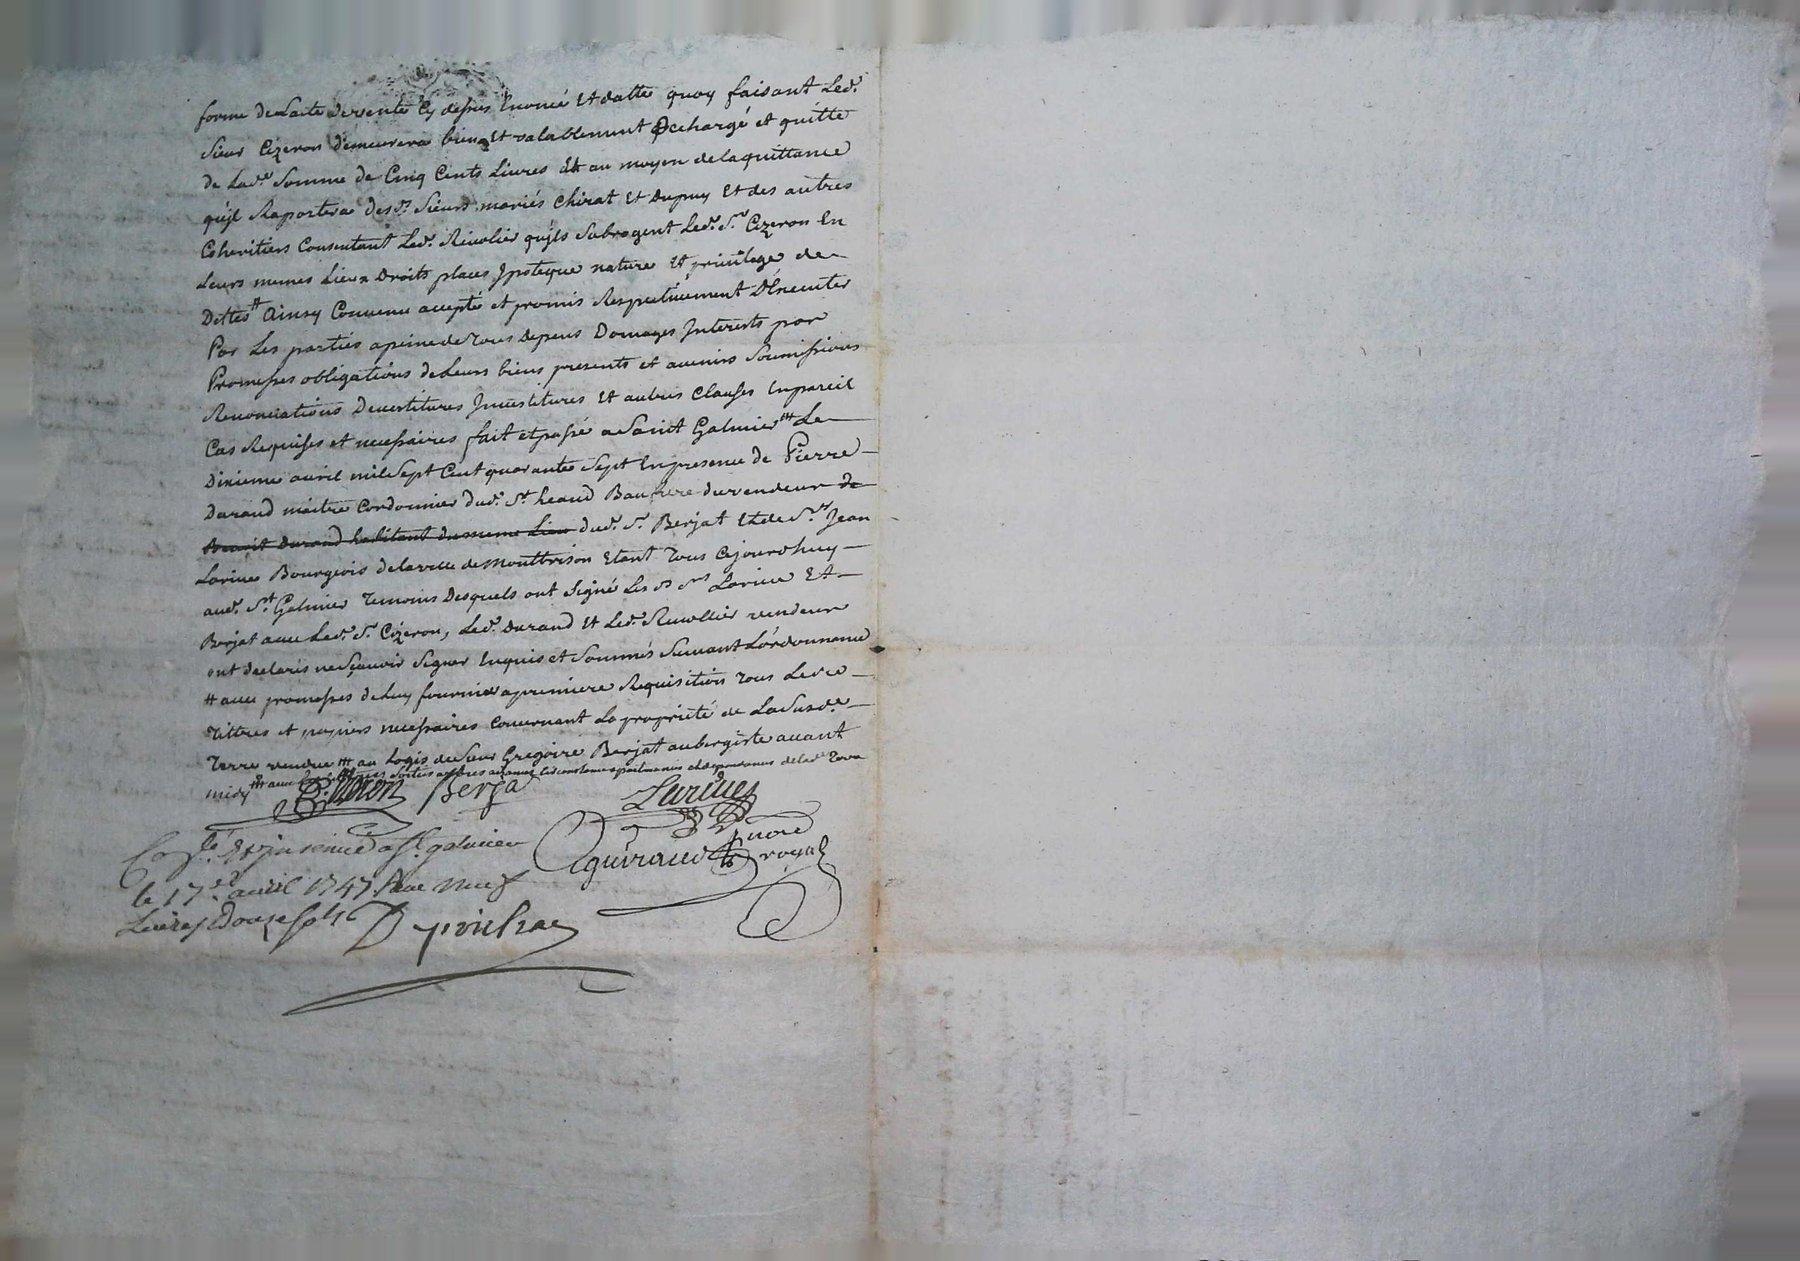 forme de Lacte de vente Cy depus Enoncé Et datte quoy faisant Led.
Sieur Cizeron demeurera bien Et valablement dechargé et quitte
de Lad.e Somme de Cinq Cents Livres Et au moyen de la quittance
qu'jl Raportera des d. Sieurs mariés Chirat Et Dupuy Et des autres
Coheritiers Consentant Led. Rivolier qu'jls Subrogent Led. Sr. Cizeron En
Leurs memes Lieux Droits places Jpoteque nature Et privilege de
Dettes # Ainsy Convenu accepté et promis Respectivement D'Executer
Par Les parties a peine de Tous depens Domages Jnterests par
Promesses obligations de Leurs biens presents et avenirs Soumissions
Renonciations Devestitures Jnvestitures Et autres Clauses En pareil
Cas Requises et necessaires fait et passé a Saint Galmier Le
Dixieme avril mil Sept Cent quarante Sept En presence de Pierre
Durand maitre Cordonnier dud. St. heand du vendeur de
Benoit Durand habitant du meme Lieu dud. Sr. Berjat Et de Sr. Jean
Larive Bourgeois de la ville de Montbrison Etant Tous Cejourdhuy
aud. St. Galmier Temoins Desquels ont Signé Les d. Srs Larive Et
Berjat avec Led. Sr. Cizeron, Led. Durand Et Led. Rivollier vendeur
ont declarés ne Sçavoir Signer Enquis et Sommés Suivant L'ordonnance
# avec promesses de Luy fournir a premiere Requisition Tous
Tittres et papiers necessaires Concernant La propriété de La Susd.e
Terre vendue # au Logis de Sieur Gregoire Berjat aubergiste avant
midy # avec Sorties arbres Circonstances apartenances et dependances de lad. Terre
Cizeron Berja Larive
Guiraud no.re royal
Con.lé Et jnsinué a St. galmier
le 17e. avril 1747 Neuf
Livres Douze Sols